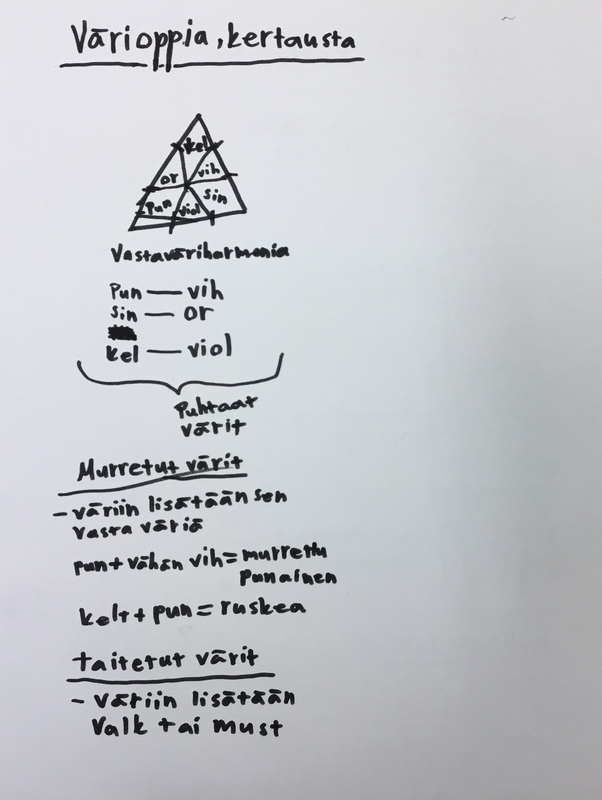 Värioppia, kertausta
kel
or vih
pun viol sin
Vastaväriharmonia
Pun — vih
sin — or
kel — viol
Puhtaat
värit
Murretut värit
- väriin lisätään sen
vasta väriä
pun + vähän vih = murrettu
punainen
kelt + pun = ruskea
taitetut värit
- väriin lisätään
Valk tai must